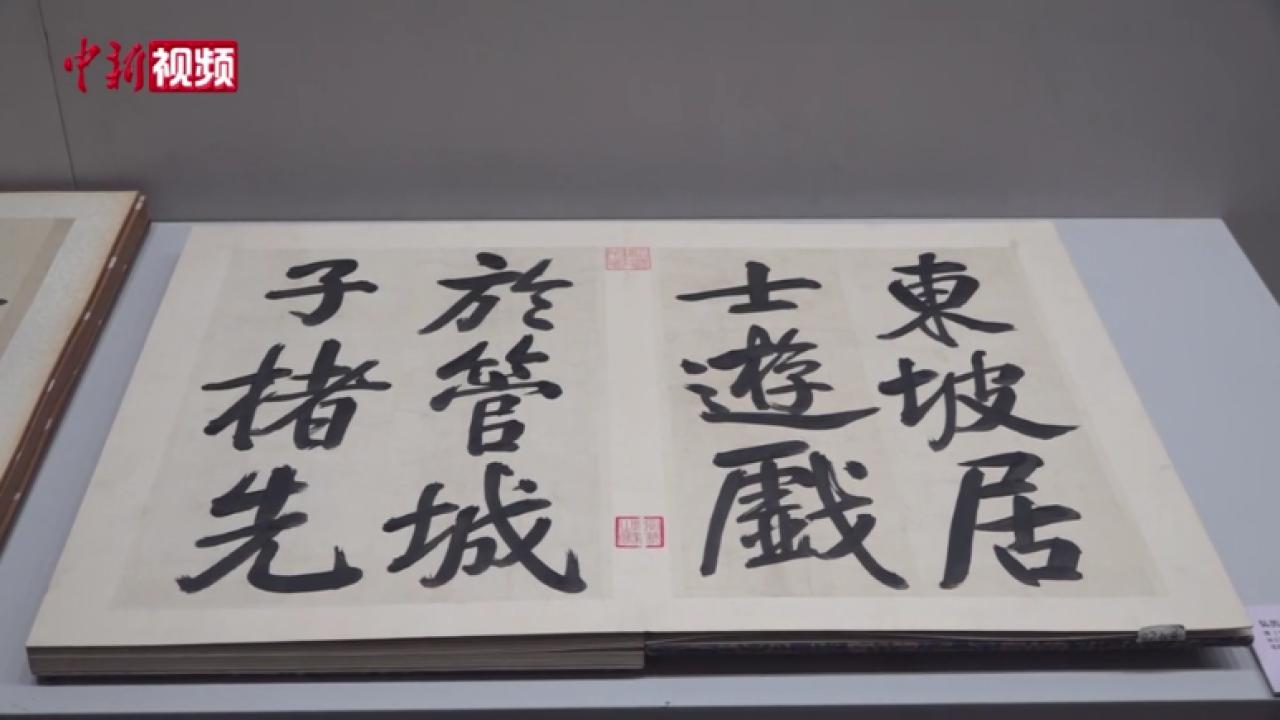 中新视频
東坡居
士遊戲
於管城
子楮先